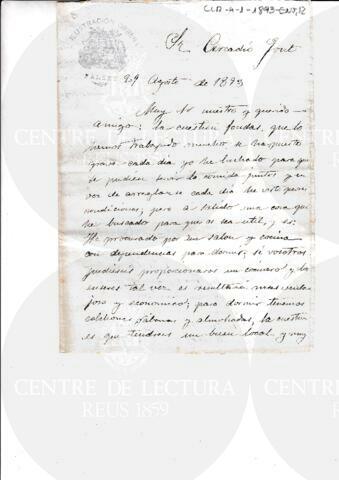 CLR-4-1-1893-ENT,12
ILUSTRACIÓN OBRERA
Sr. Arcadio Font
29 Agosto de 1893
Muy Sr nuestro y querido
amigo: la cuestion fondas, que lo
hemos trabajado mucho se ha puesto
grave cada dia yo he luchado para que
se pudiera servir la comida juntos y en
vez de arreglarse cada dia he visto peores
condiciones, pero a salido una cosa que
he buscado para que os sea util, y es:
He procurado por un salon y cocina
con dependencias para dormir, si vosotros
pudieseis proporcionaros un cocinero y
tal vez os resultaria mas venta-
joso y economico; para dormir tenemos
colchones sábanas y almohadas, la cuestion
es que tendreis un buen local y muy
CENTRE DE LECTURA
REUS 1859